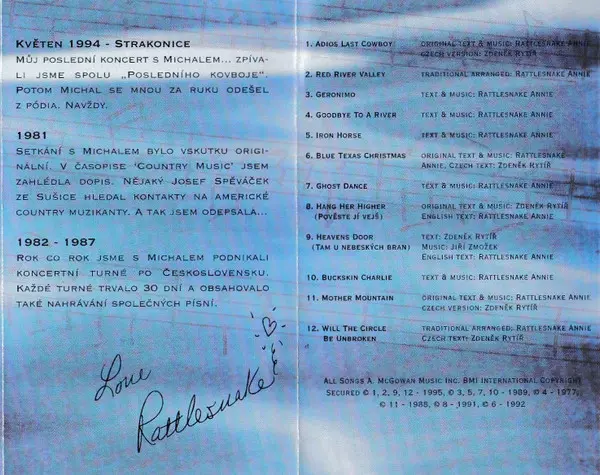 Květen 1994 - Strakonice
Můj poslední koncert s Michalem... Zpíva-
li jsme spolu „Posledního kovboje“.
Potom Michal se mnou za ruku odešel
z pódia. Navždy.
1981
Setkání s Michalem bylo vskutku origi-
nální. V časopise 'Country Music' jsem
zahlédla dopis. Nějaký Josef Spěváček
ze Sušice hledal kontakty na americké
country muzikanty. A tak jsem odepsala...
1982 - 1987
Rok co rok jsme s Michalem podnikali
koncertní turné po Československu.
Každé turné trvalo 30 dní a obsahovalo
také nahrávání společných písní.
Love
Rattlesnake
1. Adios Last Cowboy Original text & music: Rattlesnake Annie
Czech version: Zdeněk Rytíř
2. Red River Valley Traditional arranged: Rattlesnake Annie
3. Geronimo Text & music: Rattlesnake Annie
4. Goodbye To A River Text & music: Rattlesnake Annie
5. Iron Horse Text & music: Rattlesnake Annie
6. Blue Texas Christmas Original text & music: Rattlesnake
Annie, Czech text: Zdeněk Rytíř
7. Ghost Dance Text & music: Rattlesnake Annie
8. Hang Her Higher Original text & music: Zdeněk Rytíř
(Pověste jí vejš) English text: Rattlesnake Annie
9. Heavens Door Text: Zdeněk Rytíř
(Tam u nebeských bran) Music: Jiří Zmožek
English text: Rattlesnake Annie
10. Buckskin Charlie Text & music: Rattlesnake Annie
11. Mother Mountain Original text & music: Rattlesnake Annie
Czech version: Zdeněk Rytíř
12. Will The Circle Traditional arranged: Rattlesnake Annie
Be Unbroken Czech text: Zdeněk Rytíř
All Songs A. McGowan Music Inc. BMI International Copyright
Secured © 1, 2, 9, 12 - 1995, © 3, 5, 7, 10 - 1989, © 4 - 1977,
© 11 - 1988, © 8 - 1991, © 6 - 1992